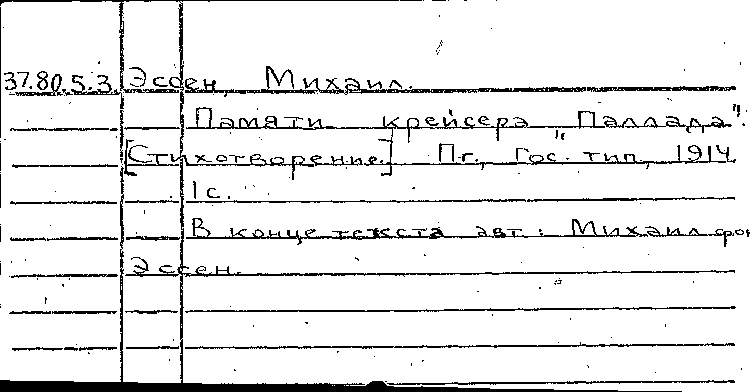 37.80.5.3. Эссен, Михаил.
Памяти крейсера "Паллада".
[Стихотворение.] Пг., Гос. тип., 1914.
1 с.
В конце текста авт.: Михаил фон
Эссен.